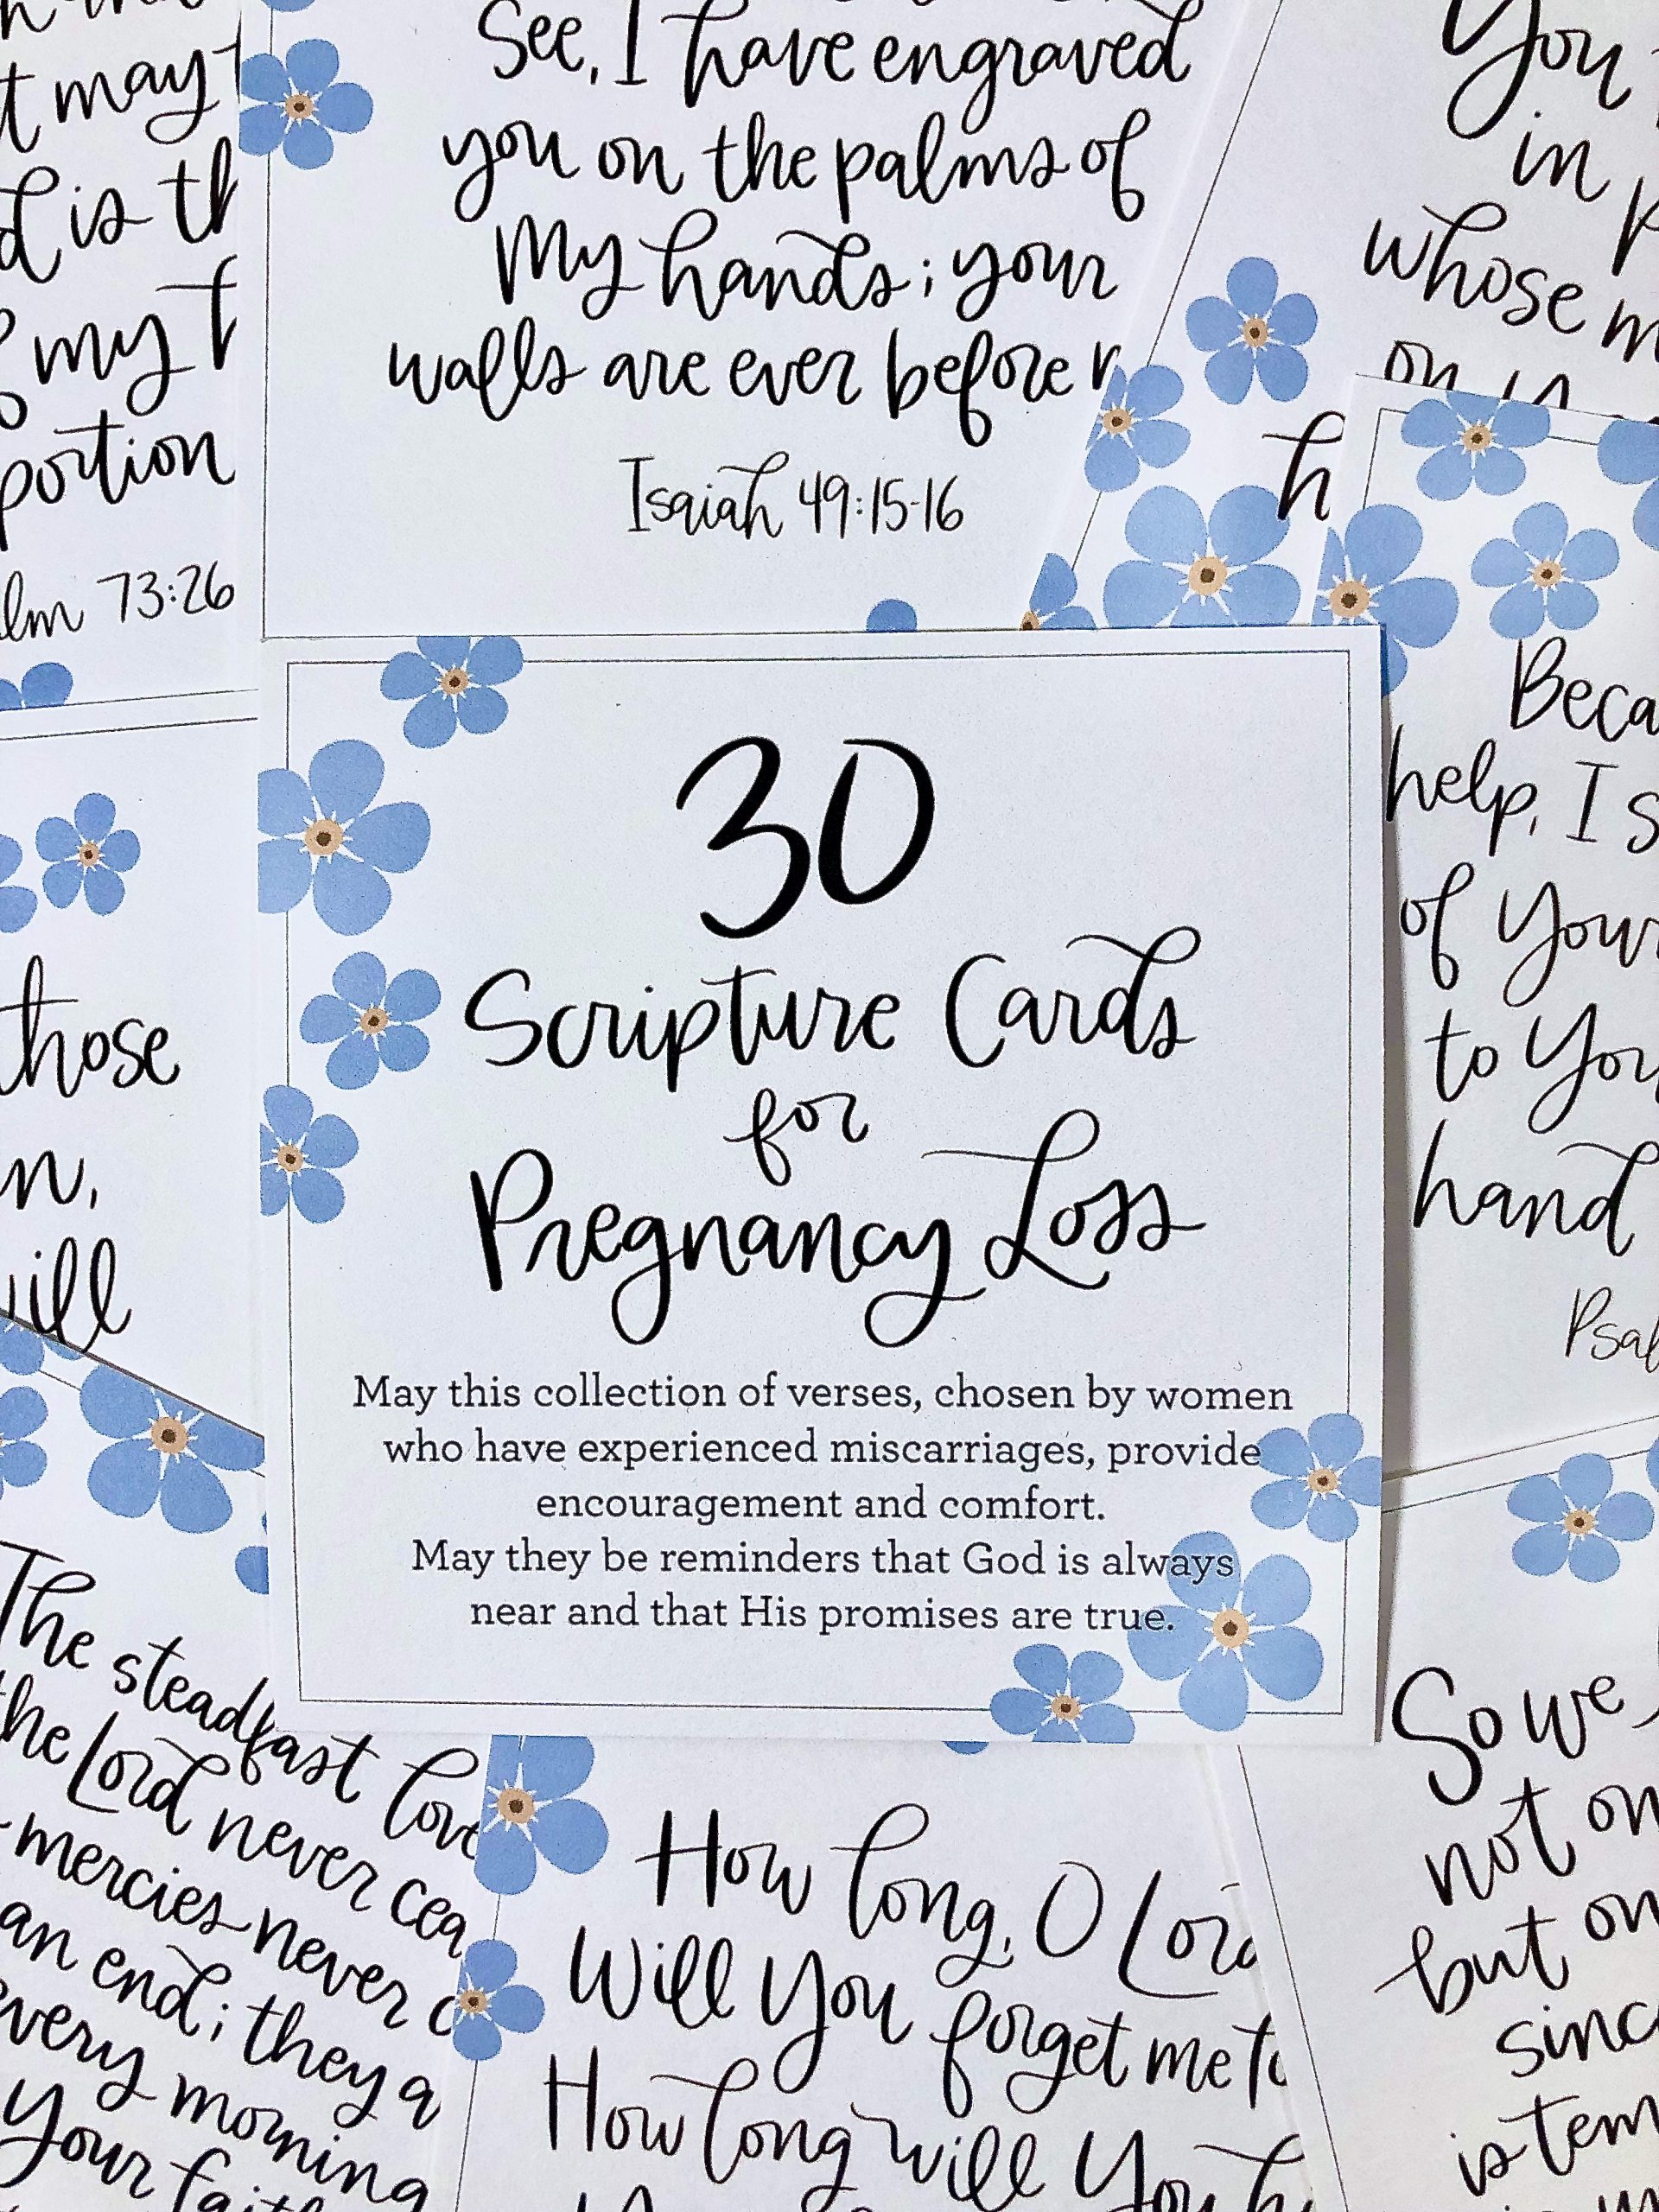 t may
d is
my
portion
73:26
See, I have engraved
you on the palms of
My hands; your
walls are ever before
Isaiah 49:15-16
You
in
whose
on
h
help, I
of Your
to
hand
30
Scripture Cards
for
Pregnancy Loss
May this collection of verses, chosen by women
who have experienced miscarriages, provide
encouragement and comfort.
May they be reminders that God is always
near and that His promises are true.
those
n,
The steadfast love
the Lord never
mercies never
an end; they
every morning
Your
How long, O Lord
Will You forget me
How long will You
So we
not on
but on
is